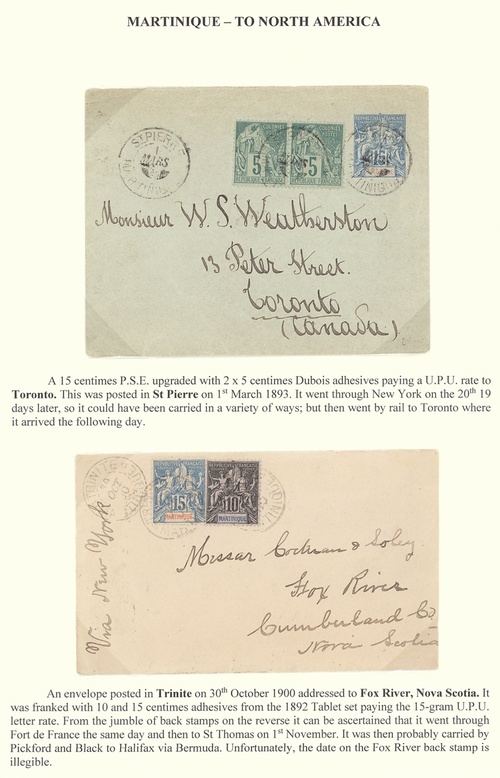 MARTINIQUE – TO NORTH AMERICA
ST PIERRE
1
MARS
MARTINIQUE
5
5
15
Monsieur W. S. Weatherston
13 Peter Street.
Toronto
(Canada)
A 15 centimes P.S.E. upgraded with 2 x 5 centimes Dubois adhesives paying a U.P.U. rate to
Toronto. This was posted in St Pierre on 1st March 1893. It went through New York on the 20th 19
days later, so it could have been carried in a variety of ways; but then went by rail to Toronto where
it arrived the following day.
15
MARTINIQUE
10
Via New York
Messar Cochran & Soley
Fox River
Cumberland Co
Nova Scotia
An envelope posted in Trinite on 30th October 1900 addressed to Fox River, Nova Scotia. It
was franked with 10 and 15 centimes adhesives from the 1892 Tablet set paying the 15-gram U.P.U.
letter rate. From the jumble of back stamps on the reverse it can be ascertained that it went through
Fort de France the same day and then to St Thomas on 1st November. It was then probably carried by
Pickford and Black to Halifax via Bermuda. Unfortunately, the date on the Fox River back stamp is
illegible.